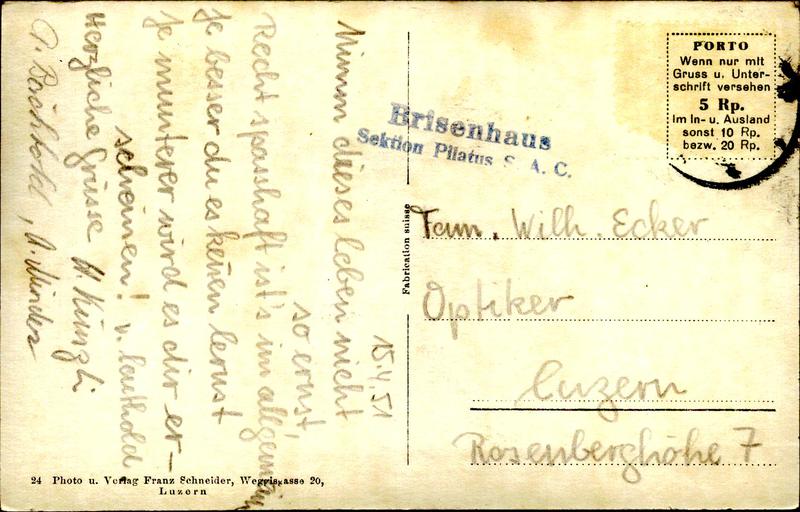 15.4.51
Nimm dieses Leben nicht
so ernst,
Recht spasshaft ist's im allgemeinen
Je besser du es kennen lernst
Je munterer wird es dir er-
scheinen! V. Leuthold
Herzliche Grüsse H. Künzli
A. Minder
Brisenhaus
Sektion Pilatus S. A. C.
PORTO
Wenn nur mit
Gruss u. Unter-
schrift versehen
5 Rp.
Im In- u. Ausland
sonst 10 Rp.
bezw. 20 Rp.
Fabrication suisse
Fam. Wilh. Ecker
Optiker
Luzern
Rosenberghöhe 7
24 Photo u. Verlag Franz Schneider, Weggisgasse 20,
Luzern